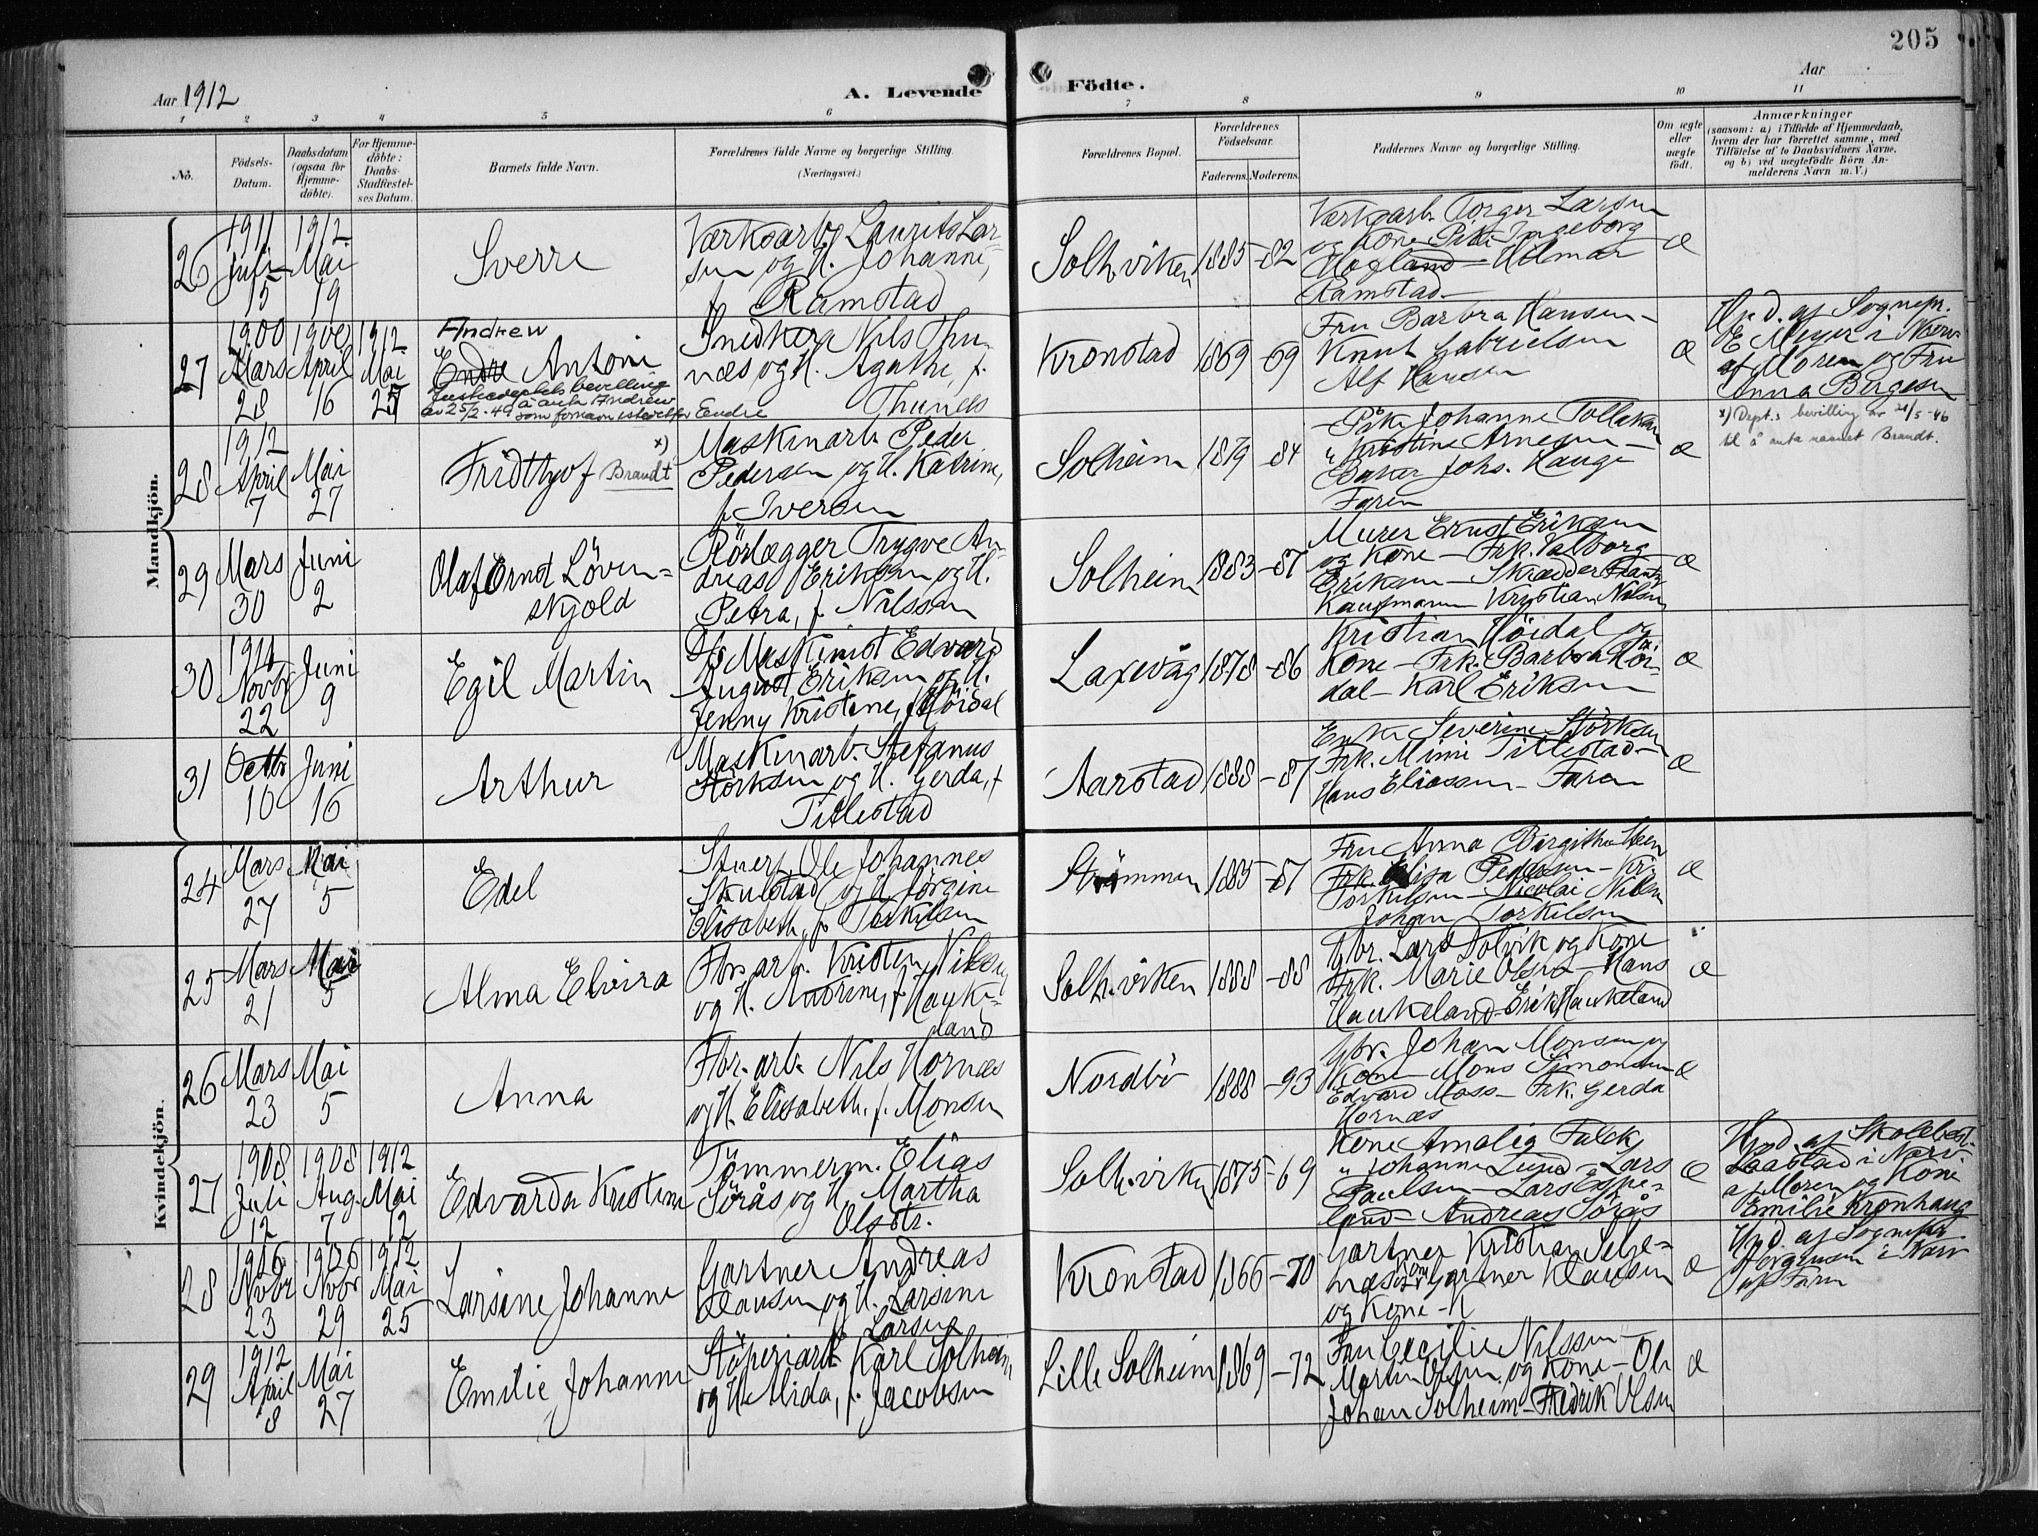 205
Aar 1912
A. Levende
Födte.
Aar
1 2 3 4 5 6 7 8 9 10 11
No.
Födsels-
Datum.
Daabsdatum
(ogsaa for
Hjemme-
döbte).
For Hjemme-
döbte:
Daabs-
Stadfæstel-
ses Datum.
Barnets fulde Navn.
Forældrenes fulde Navne og borgerlige Stilling.
(Næringsvei.)
Forældrenes Bopæl.
Forældrenes
Födselsaar.
Faderens. Moderens.
Faddernes Navne og borgerlige Stilling.
Om ægte
eller
uægte
födt.
Anmærkninger
(saasom: a) i Tilfælde af Hjemmedaab,
hvem der har forrettet samme, med
Tilföielse af to Daabsvidners Navne,
og b) ved uægtefödte Börn An-
melderens Navn m. V.)
Mandkjön.
26
1911
Juli
15
1912
Mai
19
Sverre
Værksarb. Laurits Lar-
sen og H. Johanne,
f. Ramstad
Solh.viken
1885 -82
Værksarb. Torger Larsen
og Kone Pike Ingeborg
Hogland - Hilmar
Ramstad.
æ
27
1900
Mars
28
1900
April
16
1912
Mai
25
Andrew
Endre Antoni
Justisdeptets bevilling
av 25/2-49 å anta Andrew
som fornavn istedetfor Endre
Snedker Nils Thu-
næs og H. Agathe, f.
Thunes
Kronstad
1869 -69
Fru Barbra Hansen -
Knut Gabrielsen
Alf Hansen
æ
Hjd. af Sognepr.
E Meyer i Nærv.
af Moren og Fru
Anna Börgesen
28
1912
April
7
Mai
27
Fridthjof x) Brandt
Maskinarb. Peder
Pedersen og H. Katrine,
f. Iversen
Solheim
1879 -84
Pike Johanne Tollaksen
" Kristine Arnesen -
Baker Johs. Hauge
Faren
æ
x) Dept.s bevilling av 21/5-46
til å anta navnet Brandt.
29
Mars
30
Juni
2
Olaf Ernst Löven-
skjold
Rörlægger Trygve An-
dreas Eriksen og H.
Petra, f. Nilssen
Solheim
1883 -87
Murer Ernst Eriksen
og Kone - Frk. Valborg
Eriksen - Skrædder Frantz
Kaufmann Kristian Nilsen
æ
30
1911
Novbr
22
Juni
9
Egil Martin
Maskinist Edvard
August Eriksen og H.
Jenny Kristine, f. Höidal
Laxevåg
1878 -86
Kristian Höidal og
Kone - Frk. Barbra Höi-
dal - Karl Eriksen
æ
31
Octbr
10
Juni
16
Arthur
Maskinarb. Stefanus
Störksen og H. Gerda, f.
Titlestad
Aarstad
1888 -87
Enke Severine Störksen
Frk. Mimi Titlestad -
Hans Eliassen - Faren
æ
Kvindekjön.
24
Mars
27
Mai
5
Edel
Stuert Ole Johannes
Skulstad og H. Jörgine
Elisabeth, f. Torkilsen
Strömmen
1885 -87
Fru Anna Birgitha Steen
Frk. Elisa Pedersen - Kr.
Torkilsen - Nicolai Nilsen
Johan Torkilsen
æ
25
Mars
21
Mai
5
Alma Elvira
Fbr.arb. Kristen Nilsen
og H. Andrine, f. Hauke-
land
Solh.viken
1888 -88
Gbr. Lars Dolvik og Kone
Frk. Marie Olsen - Hans
Haukeland - Erik Haukeland
æ
26
Mars
23
Mai
5
Anna
Fbr.arb. Nils Hornæs
og H. Elisabeth, f. Monsen
Nordbö
1888 -93
Gbr. Johan Monsen og
Kone - Mons Simonsen
Edvard Moss - Frk. Gerda
Hornæs
æ
27
1908
Juli
12
1908
Aug.
7
1912
Mai
12
Edvarda Kristine
Tömmerm. Elias
Sörås og H. Martha
Olsdtr.
Solh.viken
1875 -69
Kone Amalia Falck
" Johanne Lund - Lars
Paulsen - Lars Espe-
land - Andreas Sörås
æ
Hjmd. af Skolebest.
Laastad i Nærv.
af Moren og Kone
Emilie Kronhaug
28
1906
Novbr
23
1906
Novbr
29
1912
Mai
25
Larsine Johanne
Gartner Andreas
Clausen og H. Larsine
Larsen
Kronstad
1866 -70
Gartner Kristian Selje-
næs Gartner Klausen
og Kone
æ
Hjmd. af Sognepr.
Jörgensen i Nærv
af Faren
29
1912
April
8
Mai
27
Emilie Johanne
Stöperiarb. Karl Solheim
og H. Alida, f. Jacobsen
Lille Solheim
1869 -72
Fru Cecilie Nilssen -
Martin Olsen og Kone - Ole
Johan Solheim - Fredrik Olsen
æ